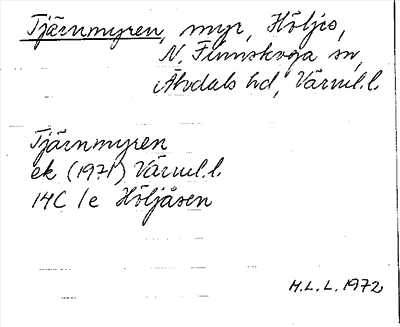 Tjärnmyren, myr, Höljes,
N. Finnskoga sn,
Älvdals hd, Värml.l.
Tjärnmyren
ek (1971) Värml.l.
14C 1e Höljåsen
H.L.L. 1972